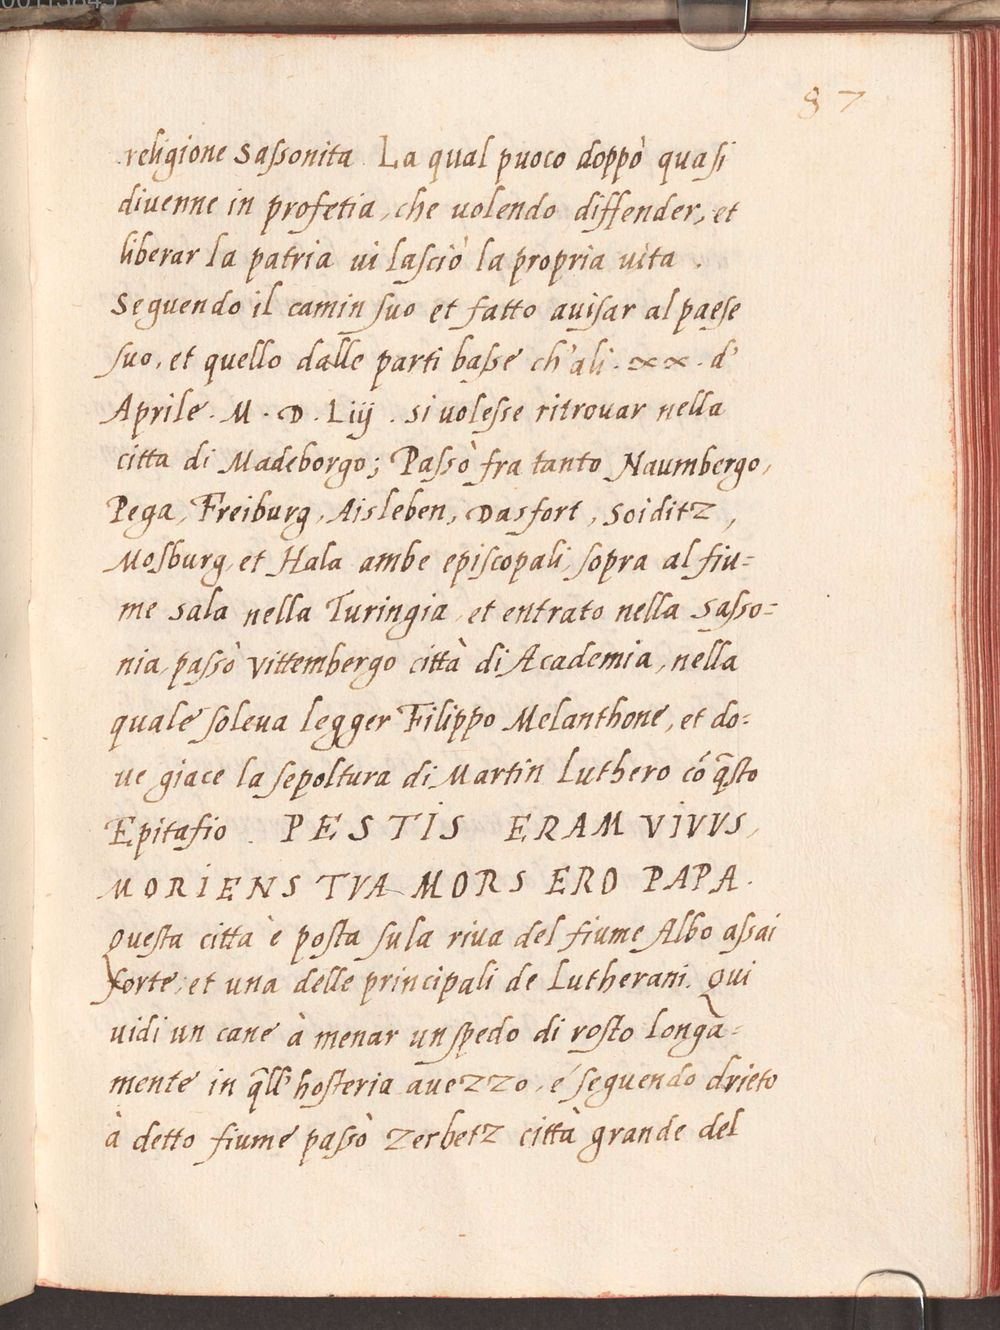 87
religione Sassonita. La qual puoco doppò quasi
diuenne in profetia, che uolendo diffender, et
liberar la patria ui lasciò la propria uita.
Seguendo il camin suo et fatto auisar al paese
suo, et quello dalle parti basse ch'ali. xx. d'
Aprile. M. D. Liij. si uolesse ritrouar nella
citta di Madeborgo; Passò fra tanto Naumbergo,
Pega, Freiburg, Aisleben, Dasfort, Soiditz,
Mosburg, et Hala ambe episcopali, sopra al fiu=
me Sala nella Turingia, et entrato nella Sasso=
nia, passò Vittembergo città di Academia, nella
quale soleua legger Filippo Melanthone, et do=
ue giace la sepoltura di Martin Luthero cō q̄sto
Epitafio. PESTIS ERAM VIVVS,
MORIENS TVA MORS ERO PAPA.
Questa citta è posta su la riua del fiume Albo assai
forte, et una delle principali de Lutherani. Qui
uidi un cane à menar un spedo di rosto longa=
mente in q̄ll' hosteria auezzo, e' seguendo drieto
à detto fiume passò Zerbetz città grande del